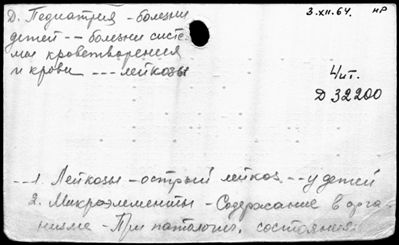 Д. Педиатрия - болезни
детей -- болезни систе-
мы кроветворения
и крови --- лейкозы
3.XII.64. НР
Чит.
Д 32200
--1. Лейкозы - острый лейкоз -- у детей
2. Микроэлементы - Содержание в орга-
низме - При патологич. состояниях